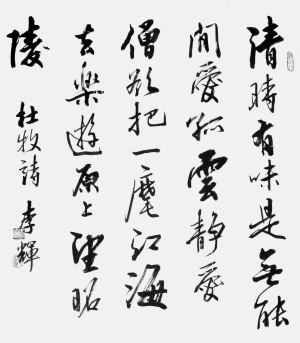 清時有味是無能
閒愛孤雲靜愛
僧欲把一麾江海
去樂遊原上望昭
陵
杜牧詩 李輝